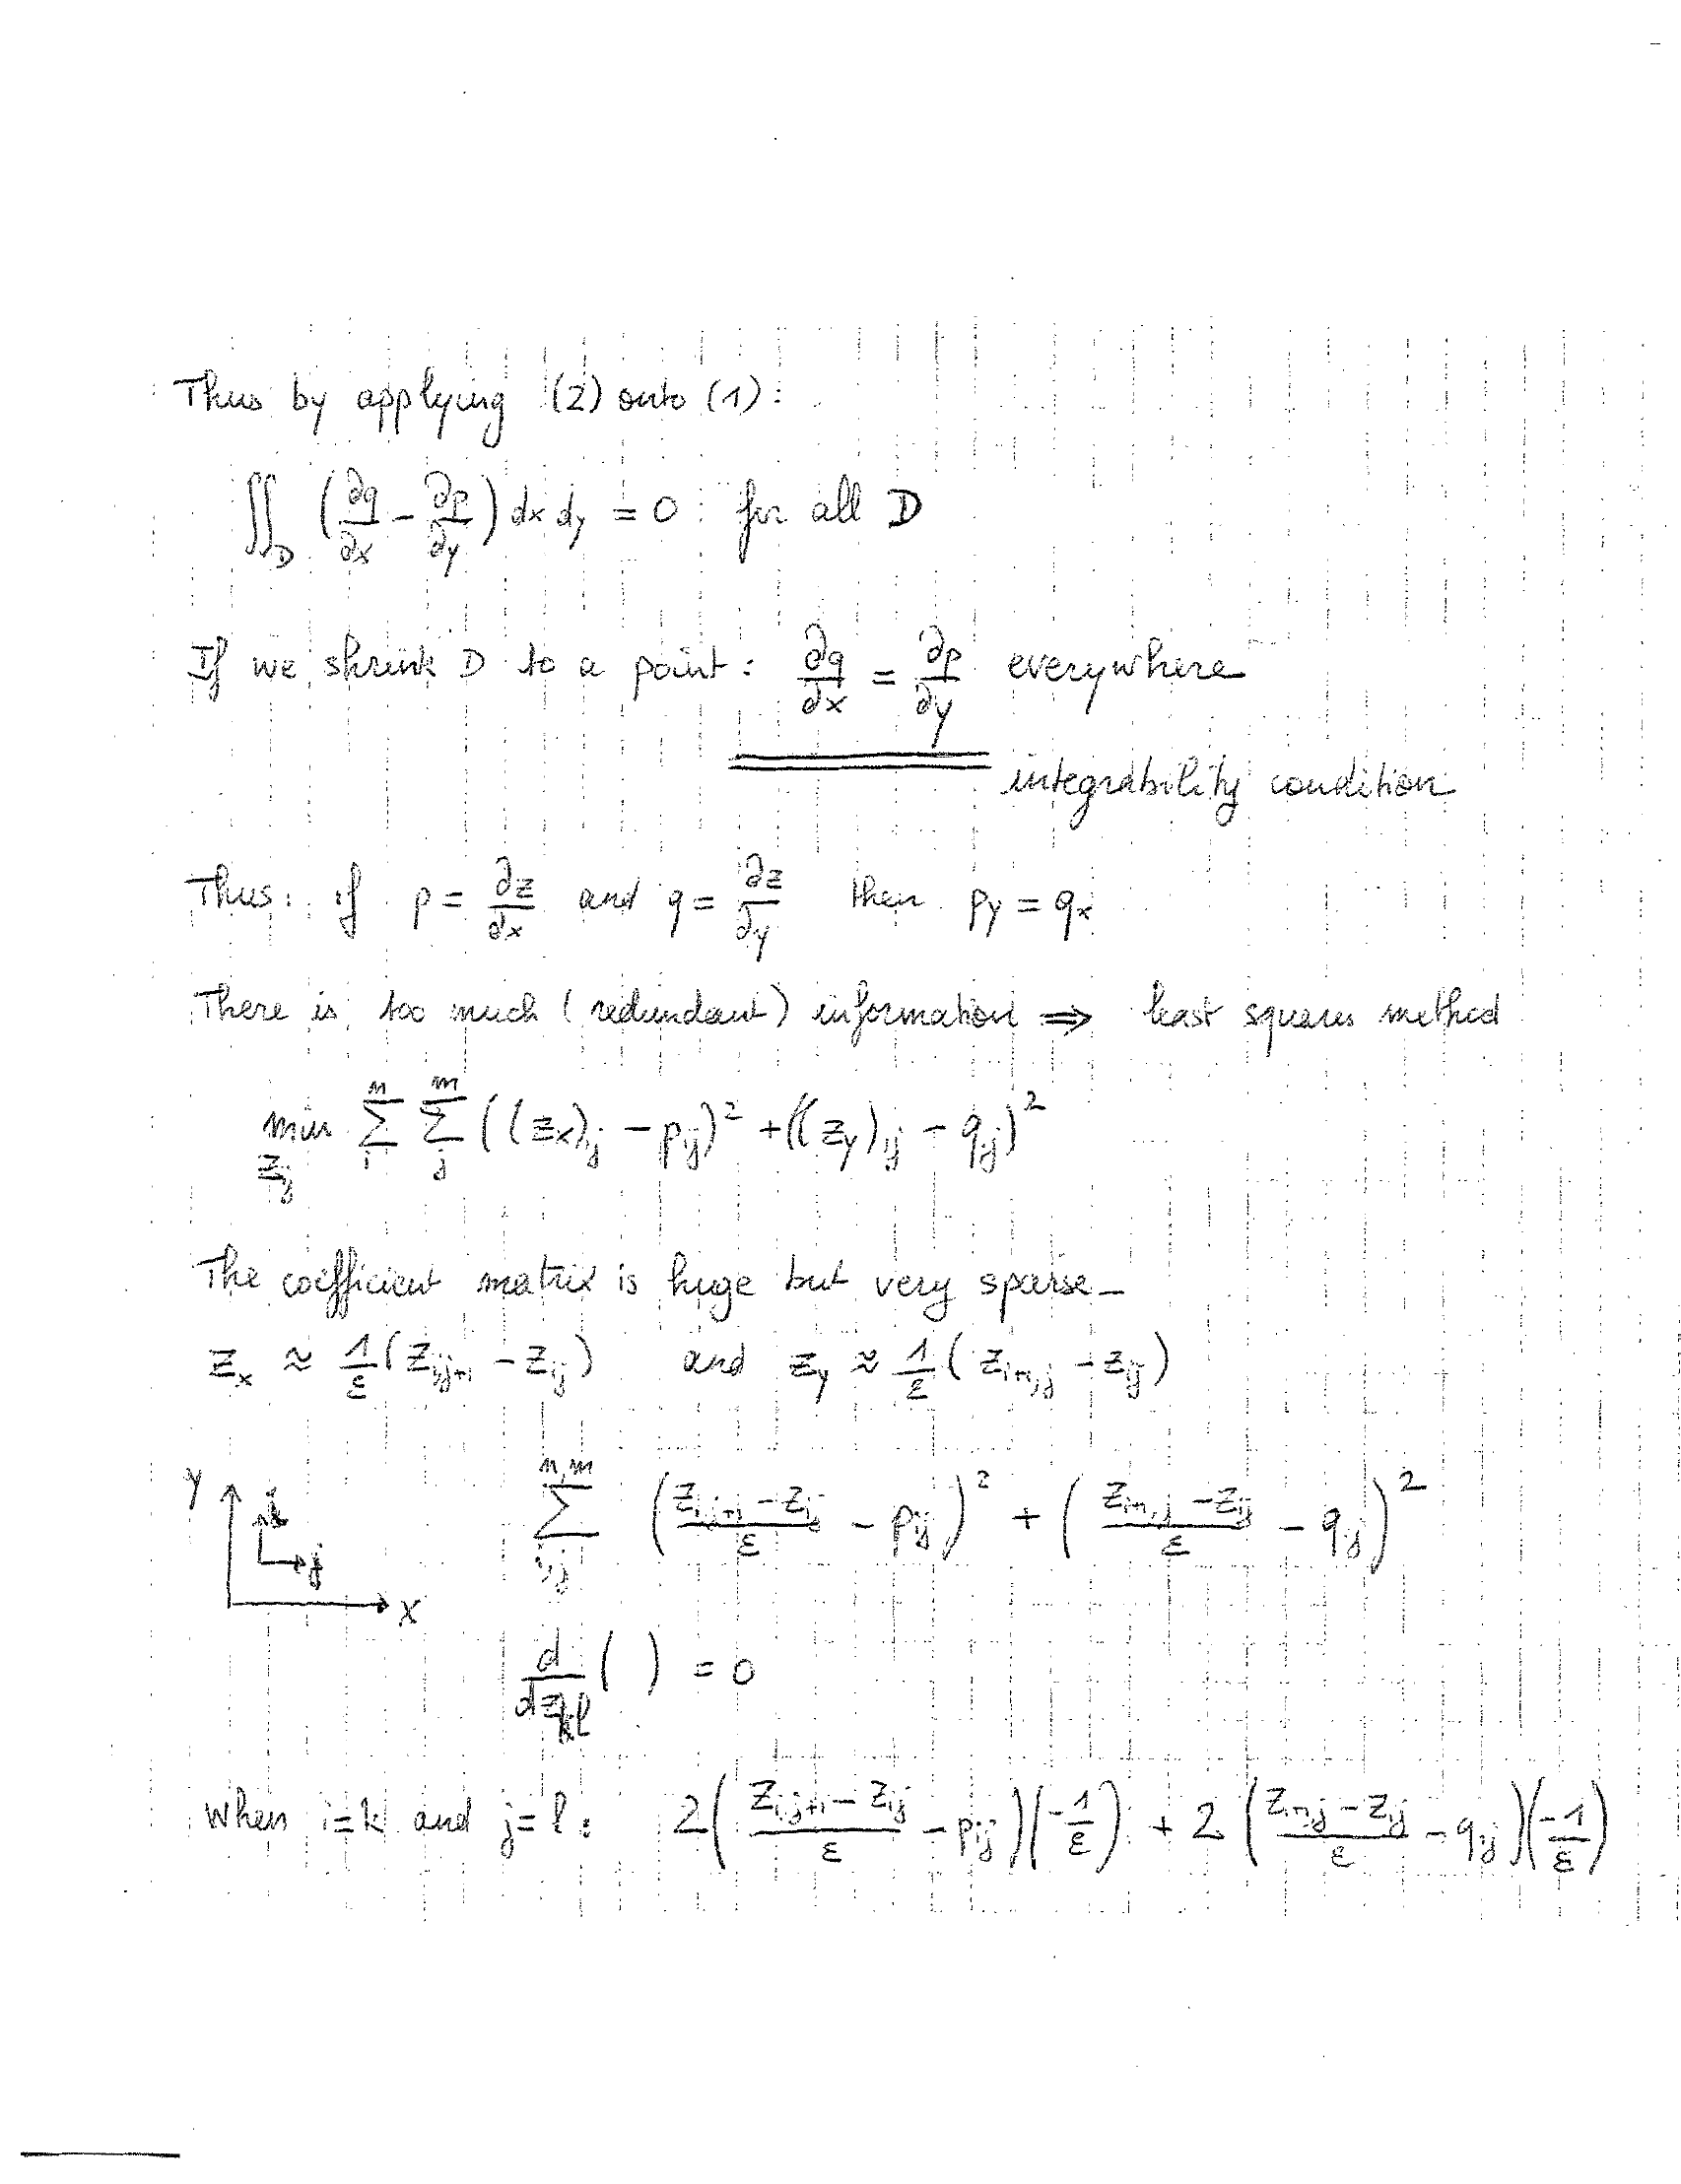 Thus by applying (2) onto (1):
∬_D (∂q/∂x − ∂p/∂y) dx dy = 0 for all D
If we shrink D to a point: ∂q/∂x = ∂p/∂y everywhere
integrability condition
Thus: if p = ∂z/∂x and q = ∂z/∂y then p_y = q_x
There is too much (redundant) information ⇒ least squares method
min_{z_ij} Σ_i^n Σ_j^m ((z_x)_ij − p_ij)² + ((z_y)_ij − q_ij)²
The coefficient matrix is huge but very sparse
z_x ≈ 1/ε (z_{i,j+1} − z_ij) and z_y ≈ 1/ε (z_{i+1,j} − z_ij)
Σ_{i,j}^{n,m} ((z_{i,j+1} − z_ij)/ε − p_ij)² + ((z_{i+1,j} − z_ij)/ε − q_ij)²
y i j x
d/dz_kl ( ) = 0
When i=k and j=l: 2((z_{i,j+1} − z_ij)/ε − p_ij)(−1/ε) + 2((z_{i+1,j} − z_ij)/ε − q_ij)(−1/ε)